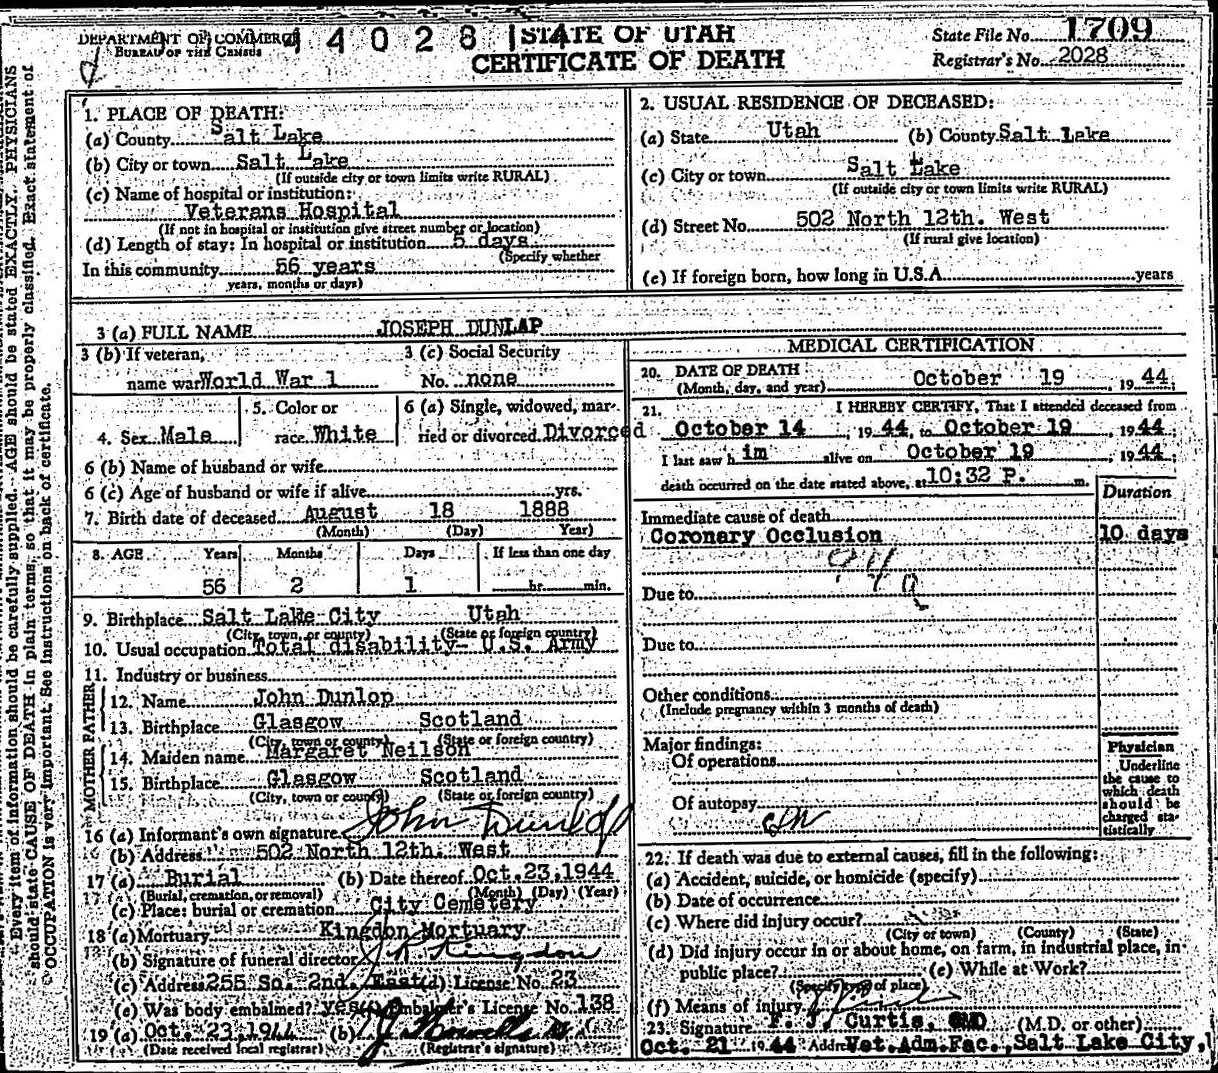 DEPARTMENT OF COMMERCE
BUREAU OF THE CENSUS
44028 14
STATE OF UTAH
CERTIFICATE OF DEATH
State File No. 1709
Registrar's No. 2028
1. PLACE OF DEATH:
(a) County Salt Lake
(b) City or town Salt Lake
(If outside city or town limits write RURAL)
(c) Name of hospital or institution:
Veterans Hospital
(If not in hospital or institution give street number or location)
(d) Length of stay: In hospital or institution 5 days
(Specify whether
In this community 56 years
years, months or days)
2. USUAL RESIDENCE OF DECEASED:
(a) State Utah (b) County Salt Lake
(c) City or town Salt Lake
(If outside city or town limits write RURAL)
(d) Street No. 502 North 12th. West
(If rural give location)
(e) If foreign born, how long in U.S.A. years
3 (a) FULL NAME JOSEPH DUNLAP
3 (b) If veteran, 3 (c) Social Security
name war World War 1 No. none
4. Sex Male 5. Color or race White 6 (a) Single, widowed, married or divorced Divorced
6 (b) Name of husband or wife
6 (c) Age of husband or wife if alive yrs.
7. Birth date of deceased August 18 1888
(Month) (Day) Year)
8. AGE Years Months Days If less than one day
56 2 1 hr. min.
9. Birthplace Salt Lake City Utah
(City, town, or county) (State or foreign country)
10. Usual occupation Total disability- U.S. Army
11. Industry or business
FATHER
12. Name John Dunlop
13. Birthplace Glasgow Scotland
(City, town or county) (State or foreign country)
MOTHER
14. Maiden name Margaret Neilson
15. Birthplace Glasgow Scotland
(City, town or county) (State or foreign country)
16 (a) Informant's own signature John Dunlop
(b) Address 502 North 12th. West
17 (a) Burial (b) Date thereof Oct. 23, 1944
(Burial, cremation, or removal) (Month) (Day) (Year)
(c) Place: burial or cremation City Cemetery
18 (a) Mortuary Kingdon Mortuary
(b) Signature of funeral director Kingdon
(c) Address 255 So. 2nd. East (d) License No. 23
(e) Was body embalmed? yes Embalmer's License No. 138
19 (a) Oct. 23, 1944 (b)
(Date received local registrar) (Registrar's signature)
MEDICAL CERTIFICATION
20. DATE OF DEATH
(Month, day, and year) October 19, 1944.
21. I HEREBY CERTIFY, That I attended deceased from
October 14, 1944, to October 19, 1944
I last saw him alive on October 19, 1944
death occurred on the date stated above, at 10:32 P. m.
Duration
Immediate cause of death
Coronary Occlusion 10 days
Due to
Due to
Other conditions
(Include pregnancy within 3 months of death)
Major findings:
Of operations
Of autopsy
Physician
Underline
the cause to
which death
should be
charged sta-
tistically
22. If death was due to external causes, fill in the following:
(a) Accident, suicide, or homicide (specify)
(b) Date of occurrence
(c) Where did injury occur?
(City or town) (County) (State)
(d) Did injury occur in or about home, on farm, in industrial place, in
public place? (e) While at Work?
(Specify type of place)
(f) Means of injury
23. Signature F. J. Curtis, (M.D. or other)
Oct. 21 1944 Address Vet.Adm.Fac., Salt Lake City,
Every item of information should be carefully supplied. AGE should be stated EXACTLY. PHYSICIANS
should state CAUSE OF DEATH in plain terms, so that it may be properly classified. Exact statement of
OCCUPATION is very important. See instructions on back of certificate.